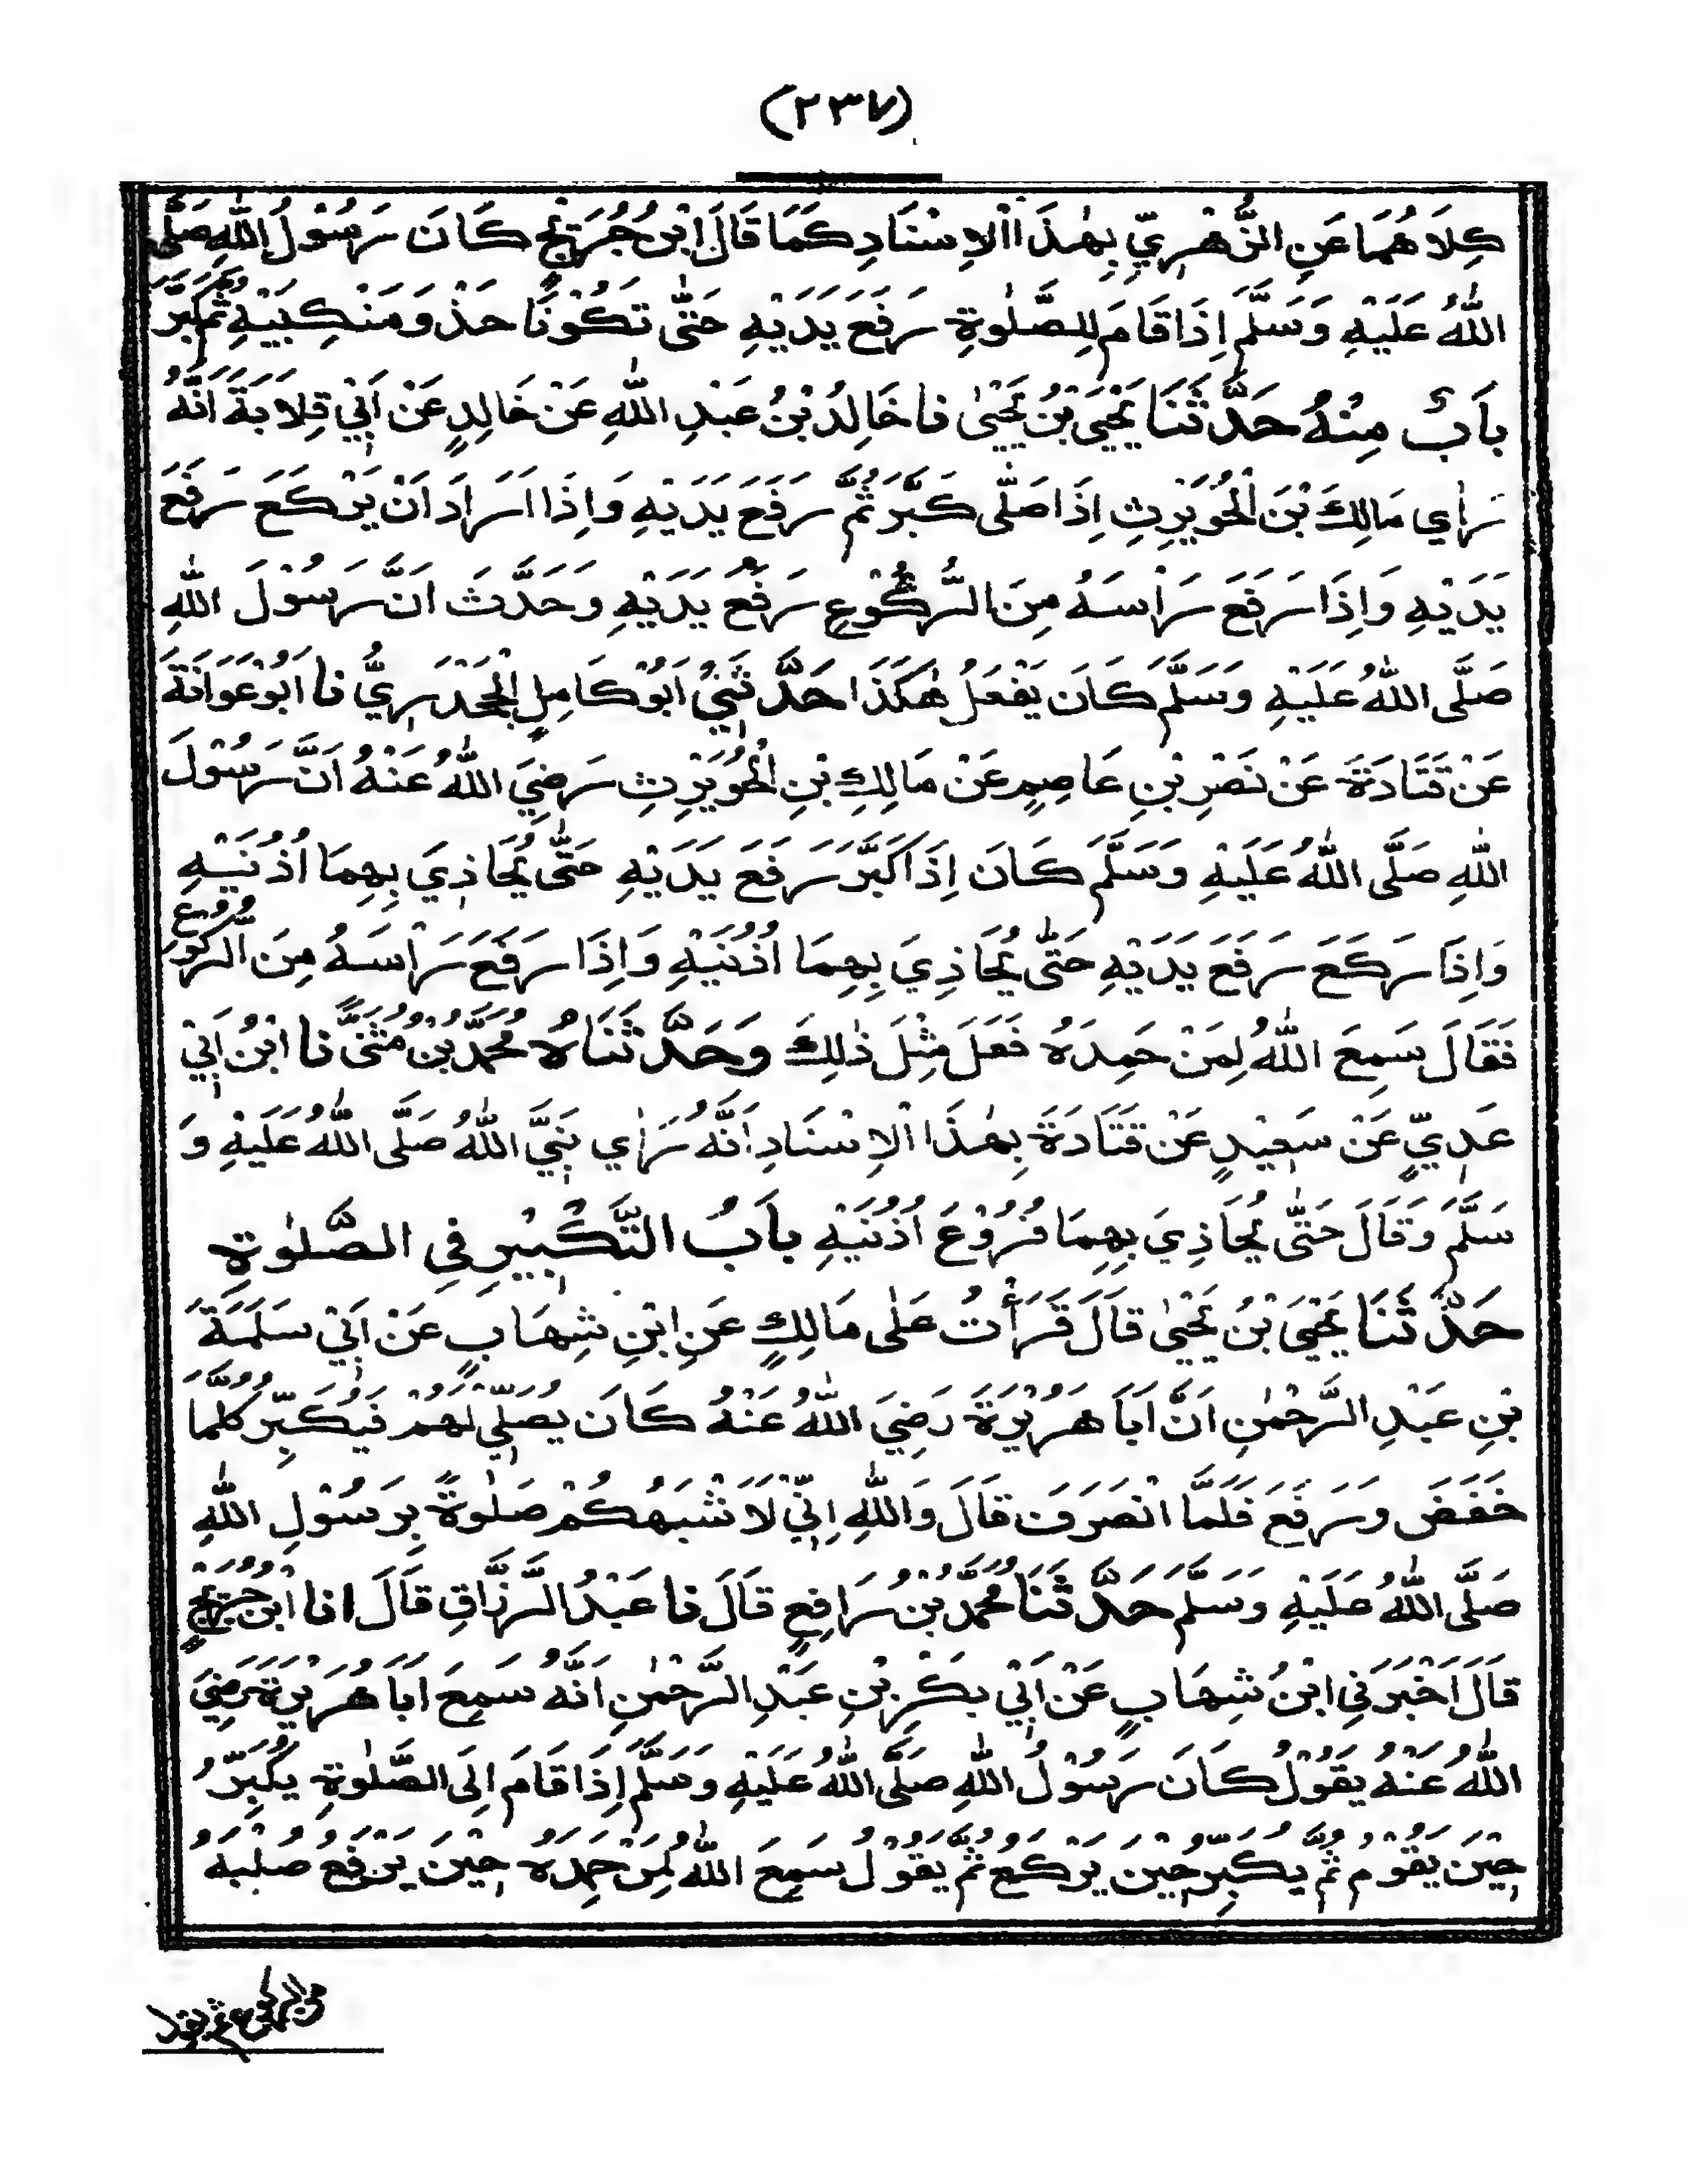 (٢٣٧)
كِلَاهُمَا عَنِ الزُّهْرِيِّ بِهٰذَا الْاِسْنَادِ كَمَا قَالَ ابْنُ جُرَيْجٍ كَانَ رَسُوْلُ اللّٰهِ صَلَّى
اللّٰهُ عَلَيْهِ وَسَلَّمَ اِذَا قَامَ لِلصَّلٰوةِ رَفَعَ يَدَيْهِ حَتّٰى تَكُوْنَا حَذْوَ مَنْكِبَيْهِ ثُمَّ كَبَّرَ
بَابٌ مِنْهُ حَدَّثَنَا يَحْيَى بْنُ يَحْيٰى نا خَالِدُ بْنُ عَبْدِ اللّٰهِ عَنْ خَالِدٍ عَنْ اَبِيْ قِلَابَةَ اَنَّهُ
رَاٰي مَالِكَ بْنَ الْحُوَيْرِثِ اِذَا صَلّٰى كَبَّرَ ثُمَّ رَفَعَ يَدَيْهِ وَاِذَا اَرَادَ اَنْ يَرْكَعَ رَفَعَ
يَدَيْهِ وَاِذَا رَفَعَ رَاْسَهُ مِنَ الرُّكُوْعِ رَفَعَ يَدَيْهِ وَحَدَّثَ اَنَّ رَسُوْلَ اللّٰهِ
صَلَّى اللّٰهُ عَلَيْهِ وَسَلَّمَ كَانَ يَفْعَلُ هٰكَذَا حَدَّثَنِيْ اَبُوْ كَامِلٍ الْجَحْدَرِيُّ نا اَبُوْ عَوَانَةَ
عَنْ قَتَادَةَ عَنْ نَصْرِ بْنِ عَاصِمٍ عَنْ مَالِكِ بْنِ الْحُوَيْرِثِ رَضِيَ اللّٰهُ عَنْهُ اَنَّ رَسُوْلَ
اللّٰهِ صَلَّى اللّٰهُ عَلَيْهِ وَسَلَّمَ كَانَ اِذَا كَبَّرَ رَفَعَ يَدَيْهِ حَتّٰى يُحَاذِيَ بِهِمَا اُذُنَيْهِ
وَاِذَا رَكَعَ رَفَعَ يَدَيْهِ حَتّٰى يُحَاذِيَ بِهِمَا اُذُنَيْهِ وَاِذَا رَفَعَ رَاْسَهُ مِنَ الرُّكُوْعِ
فَقَالَ سَمِعَ اللّٰهُ لِمَنْ حَمِدَهُ فَعَلَ مِثْلَ ذٰلِكَ وَحَدَّثَنَاهُ مُحَمَّدُ بْنُ مُثَنًّى نا ابْنُ اَبِيْ
عَدِيٍّ عَنْ سَعِيْدٍ عَنْ قَتَادَةَ بِهٰذَا الْاِسْنَادِ اَنَّهُ رَاٰي نَبِيَّ اللّٰهِ صَلَّى اللّٰهُ عَلَيْهِ وَ
سَلَّمَ وَقَالَ حَتّٰى يُحَاذِيَ بِهِمَا فُرُوْعَ اُذُنَيْهِ بَابُ التَّكْبِيْرِ فِي الصَّلٰوةِ
حَدَّثَنَا يَحْيَى بْنُ يَحْيٰى قَالَ قَرَأْتُ عَلٰى مَالِكٍ عَنِ ابْنِ شِهَابٍ عَنْ اَبِيْ سَلَمَةَ
بْنِ عَبْدِ الرَّحْمٰنِ اَنَّ اَبَا هُرَيْرَةَ رَضِيَ اللّٰهُ عَنْهُ كَانَ يُصَلِّيْ لَهُمْ فَيُكَبِّرُ كُلَّمَا
خَفَضَ وَرَفَعَ فَلَمَّا انْصَرَفَ قَالَ وَاللّٰهِ اِنِّيْ لَاَشْبَهُكُمْ صَلٰوةً بِرَسُوْلِ اللّٰهِ
صَلَّى اللّٰهُ عَلَيْهِ وَسَلَّمَ حَدَّثَنَا مُحَمَّدُ بْنُ رَافِعٍ قَالَ نا عَبْدُ الرَّزَّاقِ قَالَ انا ابْنُ جُرَيْجٍ
قَالَ اَخْبَرَنِي ابْنُ شِهَابٍ عَنْ اَبِيْ بَكْرِ بْنِ عَبْدِ الرَّحْمٰنِ اَنَّهُ سَمِعَ اَبَا هُرَيْرَةَ رَضِيَ
اللّٰهُ عَنْهُ يَقُوْلُ كَانَ رَسُوْلُ اللّٰهِ صَلَّى اللّٰهُ عَلَيْهِ وَسَلَّمَ اِذَا قَامَ اِلَى الصَّلٰوةِ يُكَبِّرُ
حِيْنَ يَقُوْمُ ثُمَّ يُكَبِّرُ حِيْنَ يَرْكَعُ ثُمَّ يَقُوْلُ سَمِعَ اللّٰهُ لِمَنْ حَمِدَهُ حِيْنَ يَرْفَعُ صُلْبَهُ